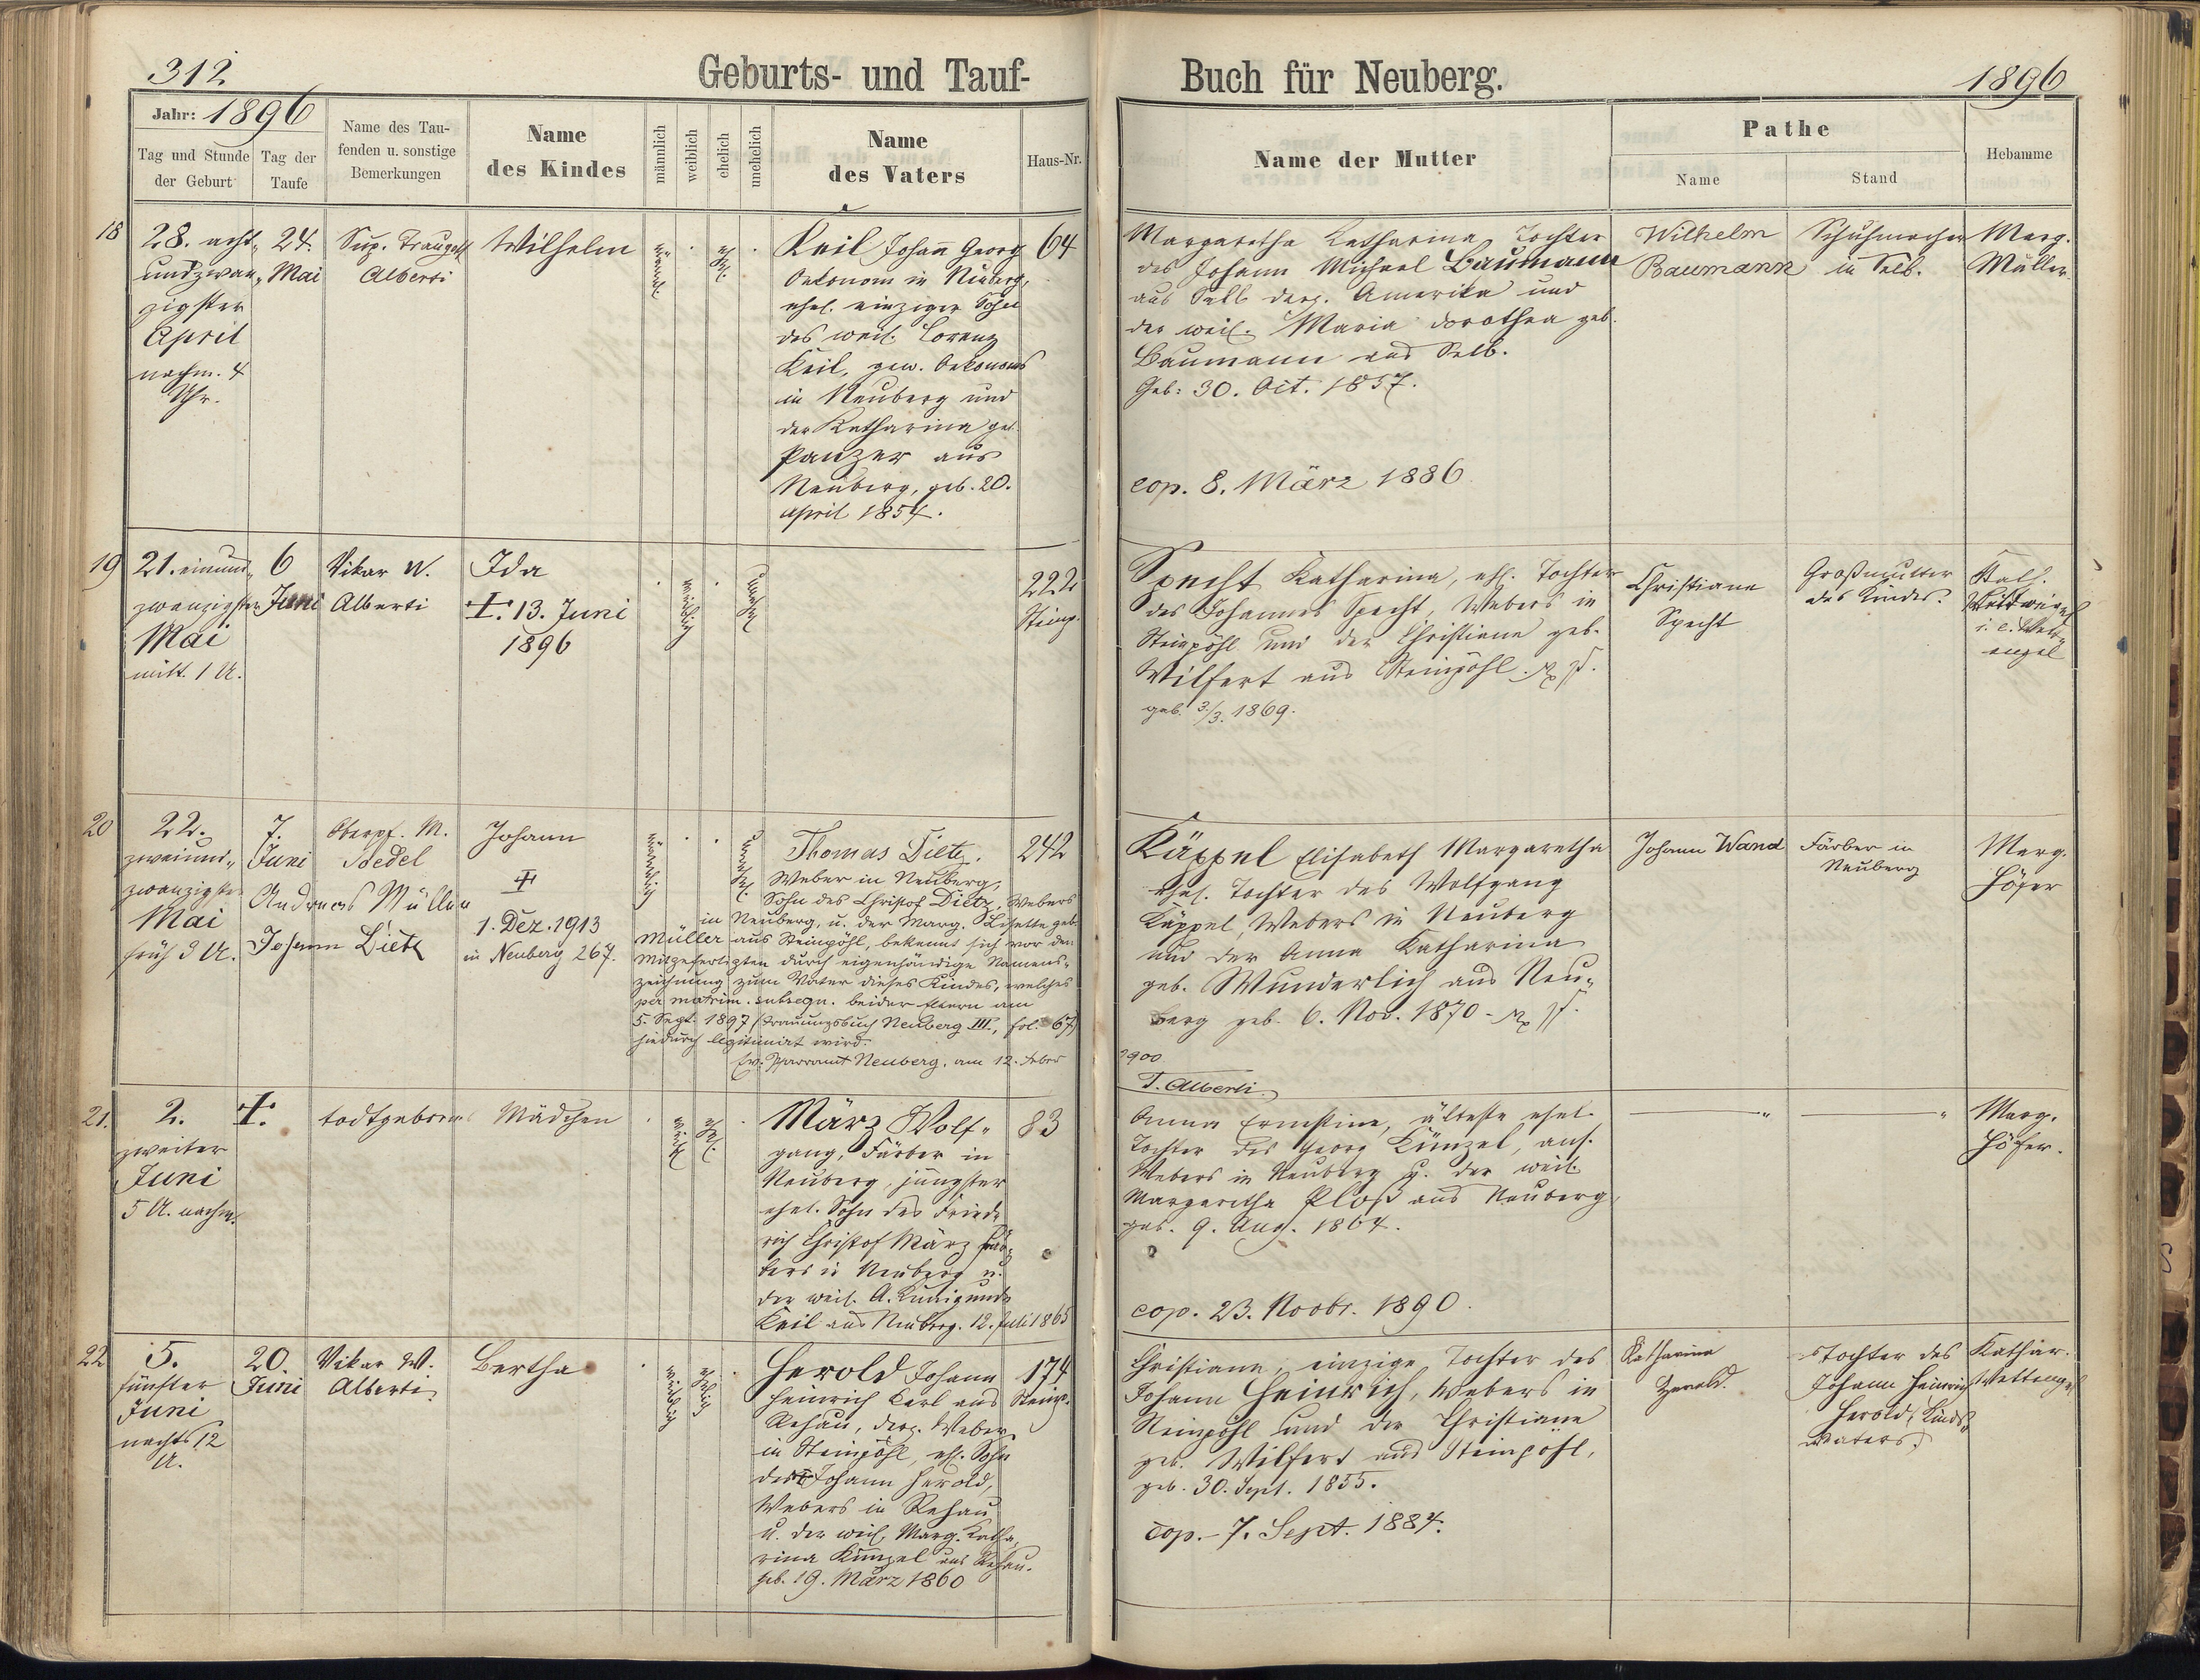 312
Geburts- und Tauf-
Buch für Neuberg.
1896
Jahr: 1896
Tag und Stunde
der Geburt
Tag der
Taufe
Name des Tau-
fenden u. sonstige
Bemerkungen
Name
des Kindes
männlich
weiblich
ehelich
unehelich
Name
des Vaters
Haus-Nr.
Name der Mutter
Pathe
Name
Stand
Hebamme
18
28. acht-
undzwan-
zigster
April
nachm. 4
Uhr.
24.
Mai
Sup. Traugott
Alberti
Wilhelm
männl.
ehel.
Keil Johañ Georg
Oekonom in Neuberg,
ehel. einziger Sohn
des weil. Lorenz
Keil, gew. Oekonoms
in Neuberg und
der Katharina geb.
Panzer aus
Neuberg, geb. 20.
April 1854.
64
Margaretha Katharina, Tochter
des Johann Michael Baumann
aus Selb derz. Amerika und
der weil. Maria Dorothea geb.
Baumann aus Selb.
Geb: 30. Oct. 1857.
cop. 8. März 1886
Wilhelm
Baumann
Schuhmacher
in Selb.
Marg.
Müller.
19
21. einund-
zwanzigster
Mai
mitt. 1 U.
6
Juni
Vikar W.
Alberti
Ida
†. 13. Juni
1896
weiblich
unehel.
222
Steinp.
Specht Katharina, ehl. Tochter
des Johannes Specht, Webers in
Steinpöhl und der Christiane geb.
Wilfert aus Steinpöhl.
geb. 3./3. 1869.
Christiane
Specht
Großmutter
des Kindes.
Kath.
i. e. Wett-
engel
20
22.
zweiund-
zwanzigster
Mai
früh 3 U.
7.
Juni
Oberpf. M.
Bedel
Andreas Müller
Johann Dietz
Johann
†
1. Dez. 1913
in Neuberg 267.
männlich
unehel.
Thomas Dietz.
Weber in Neuberg,
Sohn des Christof Dietz, Webers
in Neuberg, u. der Marg. Lisette geb.
Müller aus Steinpöhl, bekennt sich vor den
Mitgefertigten durch eigenhändige Namens-
zeichnung zum Vater dieses Kindes, welches
per matrim. subsequ. beider Eltern am
5. Sept. 1897 (Trauungsbuch Neuberg III., fol. 67)
hiedurch legitimirt wird.
Ev. Pfarramt Neuberg, am 12. Feber
242
Käppel Elisabeth Margaretha
ehel. Tochter des Wolfgang
Käppel, Webers in Neuberg
und der Anna Katharina
geb. Wunderlich aus Neu-
berg geb. 6. Nov. 1870.
1900
T. Alberti.
Johann Wand
Färber in
Neuberg
Marg.
Höfer
21.
2.
zweiter
Juni
5 U. nachm.
†.
todtgeboren
Mädchen
weibl.
ehel.
März Wolf-
gang, Färber in
Neuberg, jüngster
ehel. Sohn des Fried-
rich Christof März Fär-
bers in Neuberg u.
der weil. A. Kunigunde
Keil aus Neuberg. 12. Juli 1865
83
Anna Ernestine, älteste ehel.
Tochter des Georg Künzel, ans.
Webers in Neuberg u. der weil.
Margaretha Ploß aus Neuberg,
geb. 9. Aug. 1864.
cop. 23. Novbr. 1890.
Marg.
Höfer.
22
5.
fünfter
Juni
nachts 12
U.
20.
Juni
Vikar W.
Alberti
Bertha
weiblich
ehelich
Herold Johann
Heinrich Karl aus
Rehau, derz. Weber
in Steinpöhl, ehl. Sohn
des Johann Herold,
Webers in Rehau
u. der weil. Marg. Katha-
rina Künzel aus Rehau.
geb. 19. März 1860
174
Steinp.
Christiane, einzige Tochter des
Johann Heinrich, Webers in
Steinpöhl und der Christiane
geb. Wilfert aus Steinpöhl,
geb. 30. Sept. 1855.
cop. 7. Sept. 1884.
Katharina
Herold.
Tochter des
Johann Heinrich
Herold, Kinds-
vaters.
Kathar.
Wettengel